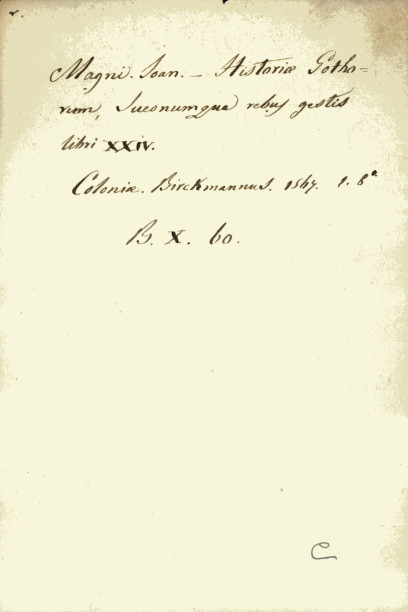 Magni. Ioan. — Historiæ Gotho=
rum, Sueonumque rebus gestis
libri XXIV.
Coloniæ. Birckmannus. 1567. 1. 8°
B. X. 60.
C